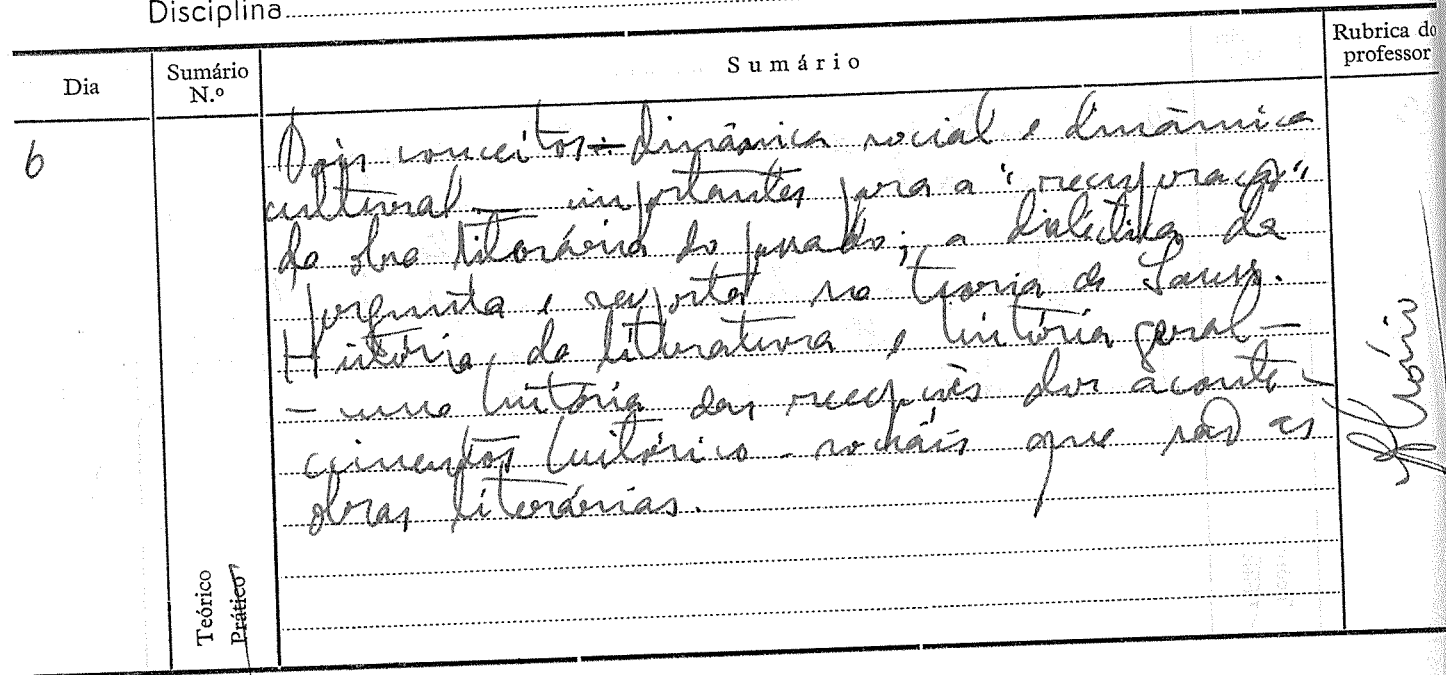 Disciplina
Dia
Sumário N.º
Sumário
Rubrica do professor
6
Dois conceitos – dinâmica social e dinâmica
cultural — importantes para a "recuperação"
da obra literária do passado; a dialéctica da
pergunta e resposta na teoria de Jauss.
História da literatura e história geral —
— uma história das recepções dos aconte-
cimentos histórico-sociais que são as
obras literárias.
Teórico
Prático